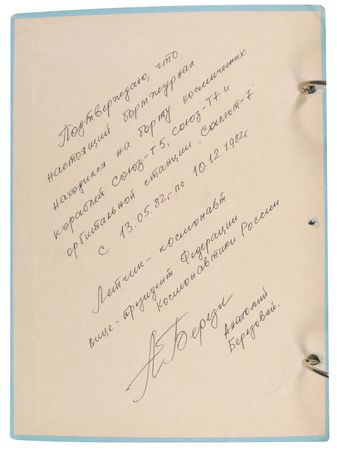 Подтверждаю, что
настоящий бортжурнал
находился на борту космических
кораблей Союз-Т5, Союз-Т7 и
орбитальной станции "Салют-7"
с 13.05.82г по 10.12.1982г.
Летчик-космонавт
вице-президент Федерации
Космонавтики России
А Берез
Анатолий
Березовой.